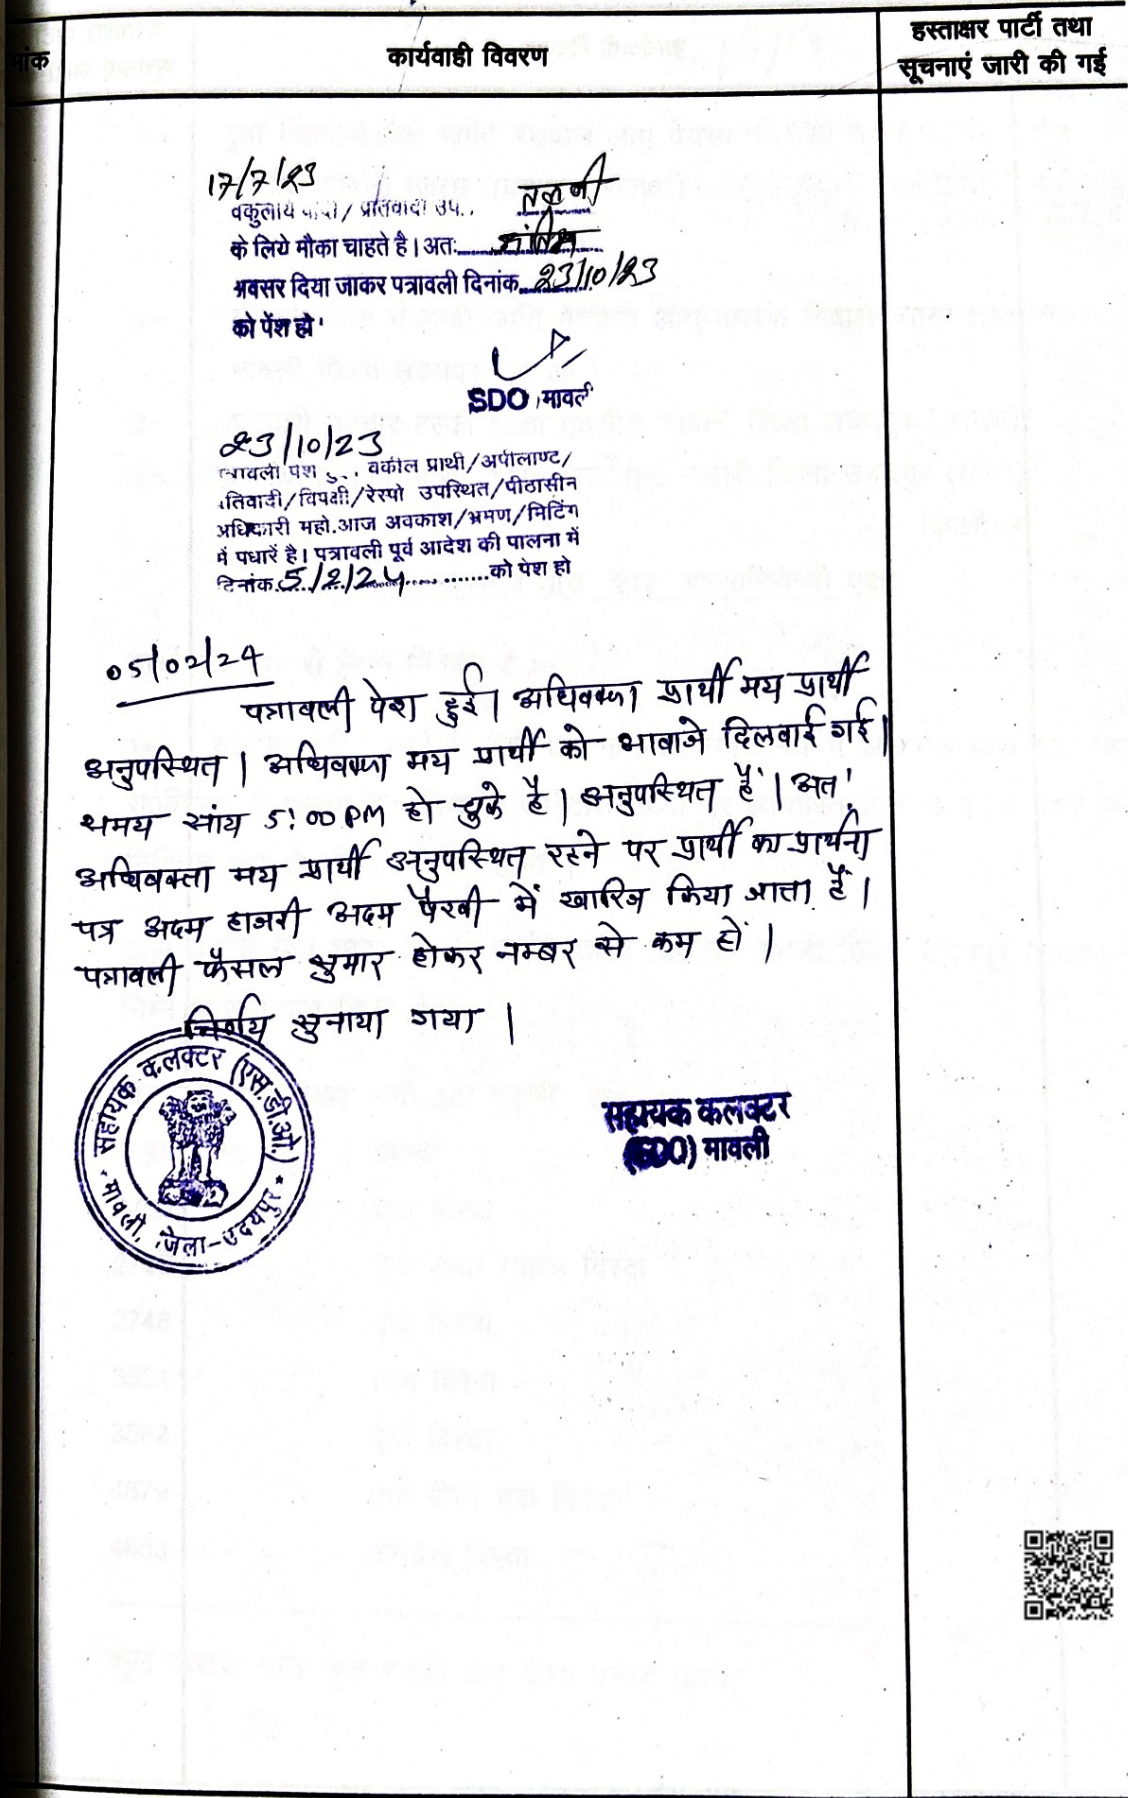 कार्यवाही विवरण
हस्ताक्षर पार्टी तथा
सूचनाएं जारी की गई
17/7/23
वकुलाये वादी / प्रतिवादी उप.. तलबी
के लिये मौका चाहते है। अतः
अवसर दिया जाकर पत्रावली दिनांक 23/10/23
को पेंश हो
SDO मावली
23/10/23
पत्रावली पेश वकील प्रार्थी/अपीलाण्ट/
प्रतिवादी/विपक्षी/रेस्पो उपस्थित/पीठासीन
अधिकारी महो.आज अवकाश/भ्रमण/मिटिंग
में पधारें है। पत्रावली पूर्व आदेश की पालना में
दिनांक 5/2/24 को पेश हो
05/02/24
पत्रावली पेश हुई। अधिवक्ता प्रार्थी मय प्रार्थी
अनुपस्थित। अधिवक्ता मय प्रार्थी को आवाजे दिलवाई गई।
समय सांय 5:00 PM हो चुके है। अनुपस्थित हैं। अत
अधिवक्ता मय प्रार्थी अनुपस्थित रहने पर प्रार्थी का प्रार्थना
पत्र अदम हाजरी अदम पैरवी में खारिज किया जाता हैं।
पत्रावली फैसल शुमार होकर नम्बर से कम हो।
निर्णय सुनाया गया।
सहायक कलक्टर (एस.डी.ओ.)
मावली, जिला-उदयपुर
सहायक कलक्टर
(SDO) मावली